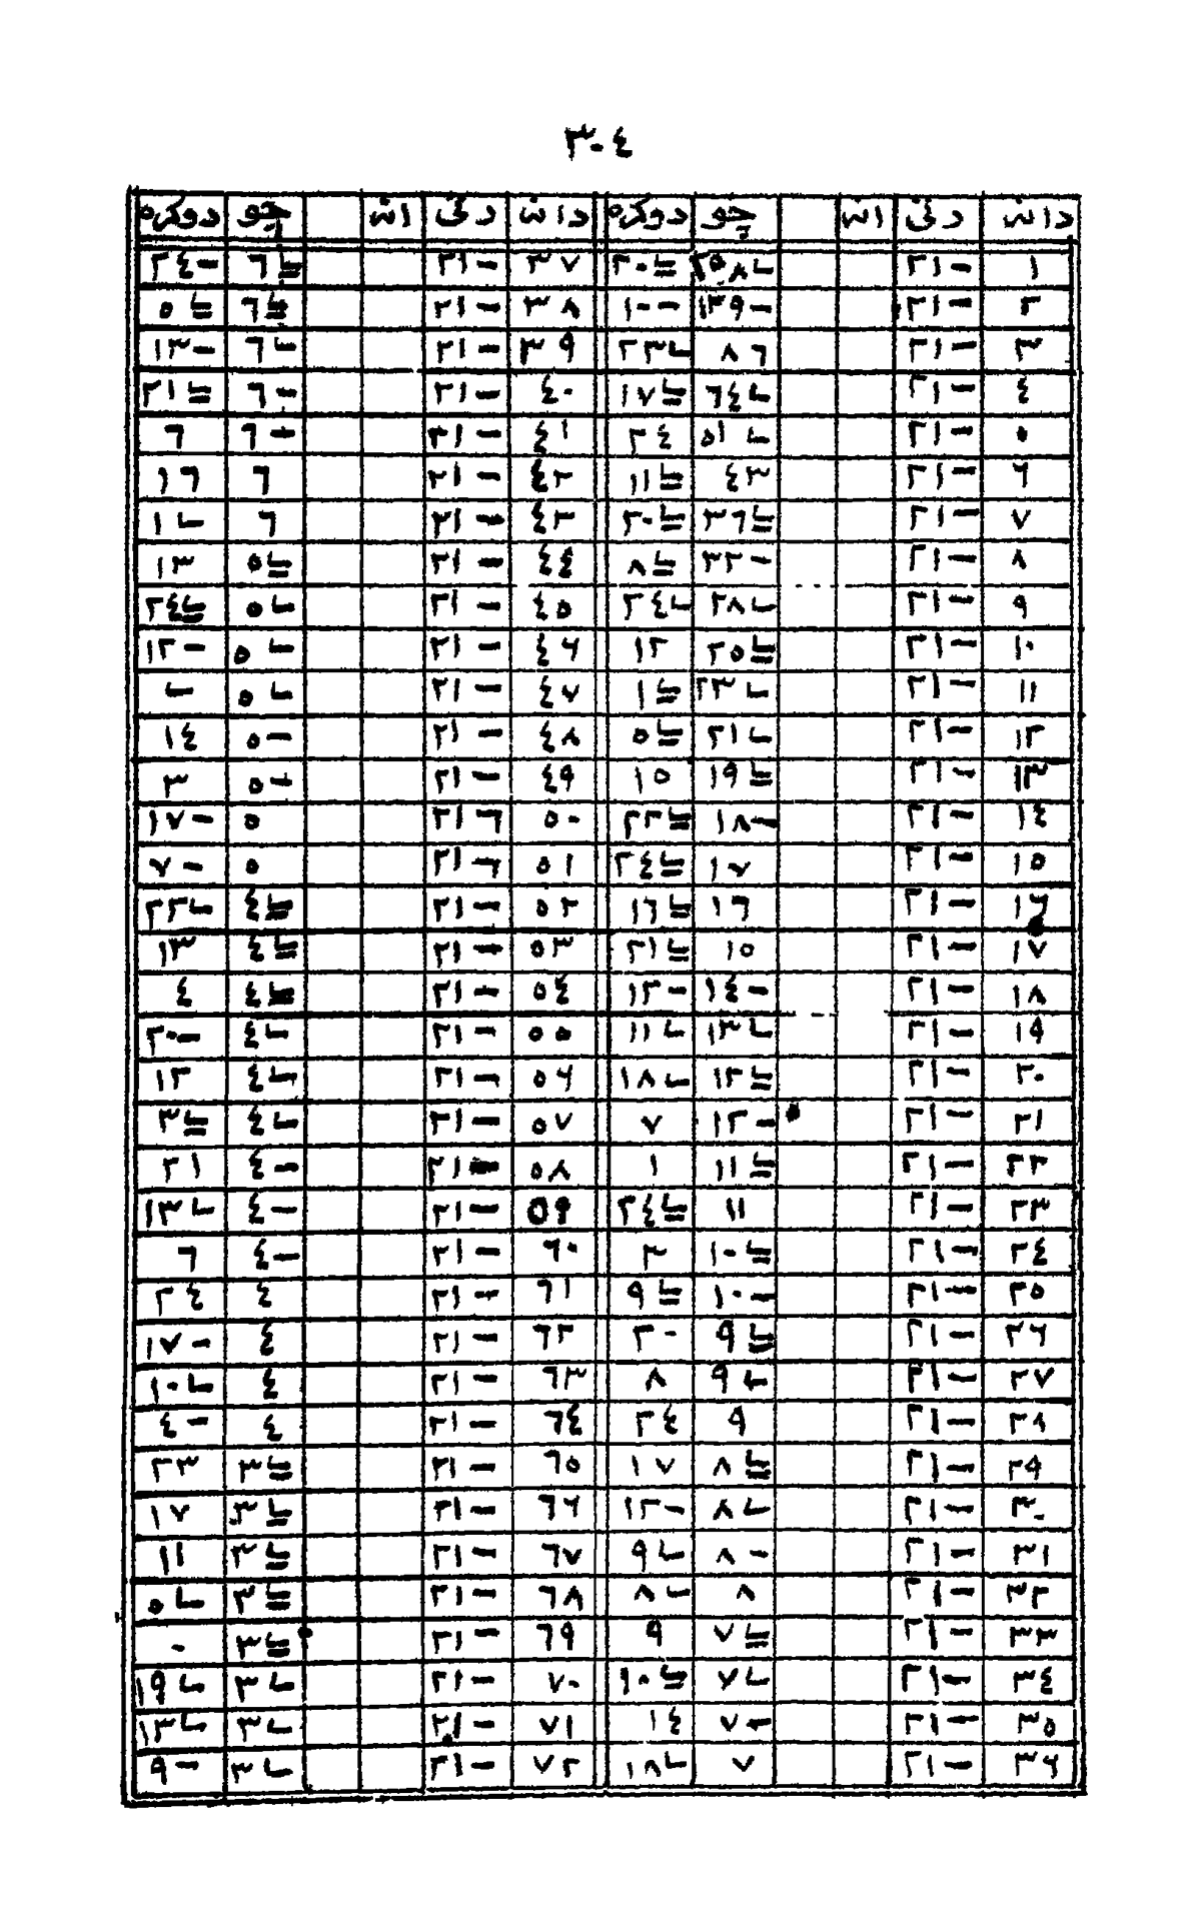 ٣٠٤
دانہ رتی انہ چو دوکرہ دانہ رتی انہ چو دوکرہ
١ ٢١ - ٢٥٨ ٢٠ ٣٧ ٢١ - ٦ ٢٤ -
٢ ٢١ - ١٢٩ - ١٠ - ٣٨ ٢١ - ٦ ٥
٣ ٢١ - ٨٦ ٢٣ ٣٩ ٢١ - ٦ ١٣ -
٤ ٢١ - ٦٤ ١٧ ٤٠ ٢١ - ٦ - ٢١
٥ ٢١ - ٥١ ٢٤ ٤١ ٢١ - ٦ - ٦
٦ ٢١ - ٤٣ ١١ ٤٢ ٢١ - ٦ ١٦
٧ ٢١ - ٣٦ ٢٠ ٤٣ ٢١ - ٦ ١
٨ ٢١ - ٣٢ - ٨ ٤٤ ٢١ - ٥ ١٣
٩ ٢١ - ٢٨ ٢٤ ٤٥ ٢١ - ٥ ٢٤
١٠ ٢١ - ٢٥ ١٢ ٤٦ ٢١ - ٥ ١٢ -
١١ ٢١ - ٢٣ ١ ٤٧ ٢١ - ٥
١٢ ٢١ - ٢١ ٥ ٤٨ ٢١ - ٥ - ١٤
١٣ ٢١ - ١٩ ١٥ ٤٩ ٢١ - ٥ - ٣
١٤ ٢١ - ١٨ - ٢٢ ٥٠ ٢١ - ٥ ١٧ -
١٥ ٢١ - ١٧ ٢٤ ٥١ ٢١ - ٥ ٧ -
١٦ ٢١ - ١٦ ١٦ ٥٢ ٢١ - ٤ ٢٢
١٧ ٢١ - ١٥ ٢١ ٥٣ ٢١ - ٤ ١٣
١٨ ٢١ - ١٤ - ١٢ - ٥٤ ٢١ - ٤ ٤
١٩ ٢١ - ١٣ ١١ ٥٥ ٢١ - ٤ ٢٠ -
٢٠ ٢١ - ١٢ ١٨ ٥٦ ٢١ - ٤ ١٢
٢١ ٢١ - ١٢ - ٧ ٥٧ ٢١ - ٤ ٣
٢٢ ٢١ - ١١ ١ ٥٨ ٢١ - ٤ - ٢١
٢٣ ٢١ - ١١ ٢٤ ٥٩ ٢١ - ٤ - ١٣
٢٤ ٢١ - ١٠ ٣ ٦٠ ٢١ - ٤ - ٦
٢٥ ٢١ - ١٠ - ٩ ٦١ ٢١ - ٤ ٢٤
٢٦ ٢١ - ٩ ٢٠ ٦٢ ٢١ - ٤ ١٧ -
٢٧ ٢١ - ٩ ٨ ٦٣ ٢١ - ٤ ١٠
٢٨ ٢١ - ٩ ٢٤ ٦٤ ٢١ - ٤ ٤ -
٢٩ ٢١ - ٨ ١٧ ٦٥ ٢١ - ٣ ٢٣
٣٠ ٢١ - ٨ ١٢ - ٦٦ ٢١ - ٣ ١٧
٣١ ٢١ - ٨ - ٩ ٦٧ ٢١ - ٣ ١١
٣٢ ٢١ - ٨ ٨ ٦٨ ٢١ - ٣ ٥
٣٣ ٢١ - ٧ ٩ ٦٩ ٢١ - ٣ ٠
٣٤ ٢١ - ٧ ١٠ ٧٠ ٢١ - ٣ ١٩
٣٥ ٢١ - ٧ - ١٤ ٧١ ٢١ - ٣ ١٣
٣٦ ٢١ - ٧ ١٨ ٧٢ ٢١ - ٣ ٩ -